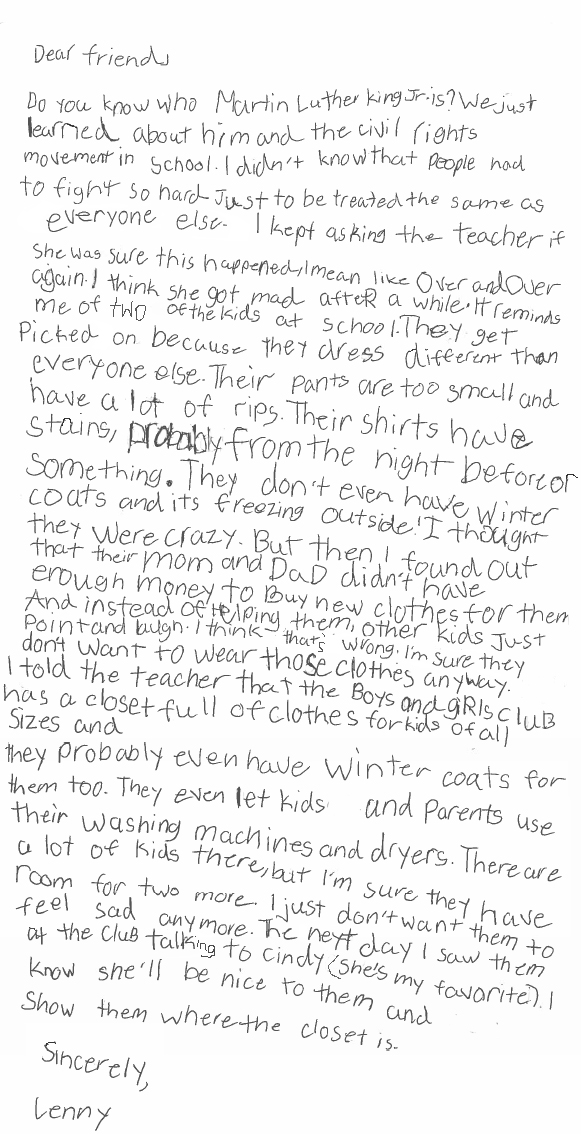 Dear friends
Do you know who Martin Luther king Jr. is? We just
learned about him and the civil rights
movement in school. I didn't know that people had
to fight so hard Just to be treated the same as
everyone else. I kept asking the teacher if
she was sure this happened, I mean like Over and Over
again. I think she got mad afteR a while. It reminds
me of two of the kids at school. They get
Picked on because they dress different than
everyone else. Their pants are too small and
have a lot of rips. Their shirts have
stains, probably from the night before or
something. They don't even have winter
coats and its freezing outside! I thought
they were crazy. But then I found out
that their Mom and DaD didn't have
enough money to Buy new clothes for them
And instead of Helping them, other kids Just
Point and laugh. I think that's wrong. I'm sure they
don't want to wear those clothes anyway.
I told the teacher that the Boys and giRls club
has a closet full of clothes for kids of all
Sizes and
they probably even have winter coats for
them too. They even let kids and Parents use
their washing machines and dryers. There are
a lot of kids there, but I'm sure they have
room for two more. I just don't want them to
feel sad anymore. The next day I saw them
at the Club talking to cindy (she's my favorite). I
know she'll be nice to them and
Show them where the closet is.
Sincerely,
Lenny